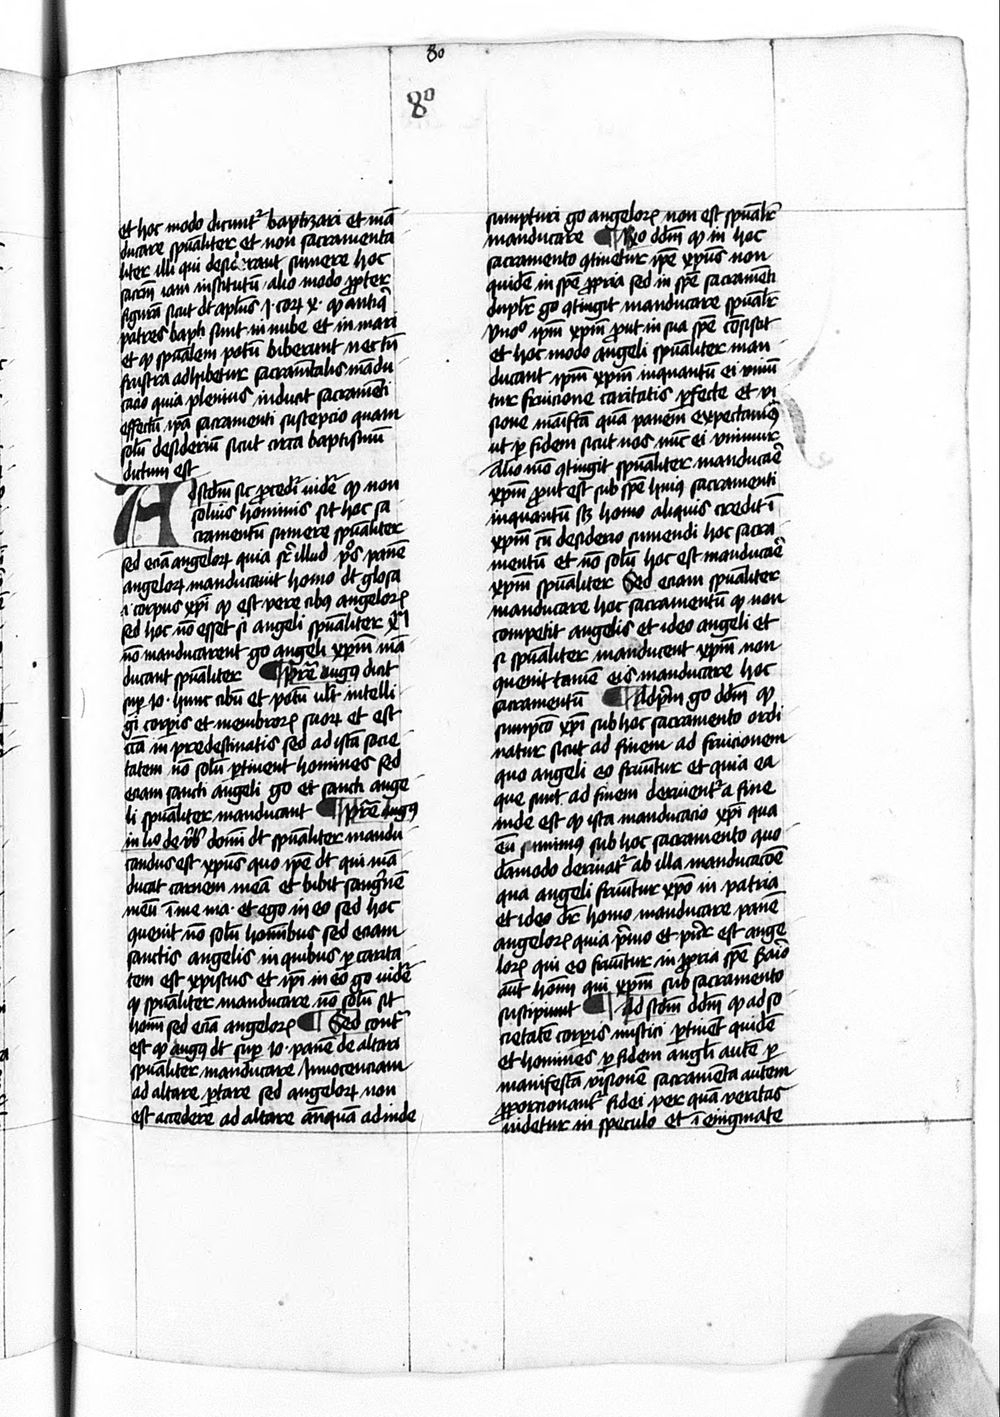 80
80
et hoc modo dicunt᷑ baptizari et mā
ducare spūaliter et non sacramenta
liter illi qui desiderant sumere hoc
sacrm̄ iam institutū alio modo ꝓpter
figurā sicut dt apl̄us j corꝫ x qp̄ antiq̄
patres baptī sunt in nube et in mari
et qp̄ spūalem potū biberunt nec tn̄
frustra adhibetur sacramētalis mādu
cacio quia plenius inducit sacramēti
effectū ipā sacramenti suscepcio quam
solū desideriū sicut circa baptismū
dictum est
Ad scd̄m sic ꝓcedit᷑ uidet᷑ qp̄ non
solius hominis sit hoc sa
cramentū sumere spūaliter
sed eciā angeloꝝ quia sr̄ illud p̄s panē
angeloꝝ manducauit homo dt glosa
i corpus xp̄i qp̄ est vere cibꝰ angeloꝝ
sed hoc nō esset si angeli spūaliter xp̄m
nō manducarent gͦ angeli xp̄m mā
ducant spūaliter ¶ Pret̄ea augꝰ dicit
sup̄ Io· hunc cibū et potū ult̄ intelli
gi corpīs et membroꝝ suoꝝ qp̄ est
ecc̄a in predestinatis sed ad istā socie
tatem nō solū ꝑtinent homines sed
eciam sancti angeli gͦ et sancti ange
li spūaliter manducant ¶ Pret̄ea augꝰ
in lib̄o de v̄bis domī dt spūaliter mandu
candus est xp̄us quo ip̄e dt qui mā
ducat carnem meā et bibit sangͥnē
meū ī me ma· et ego in eo sed hoc
quenit nō solū homībus sed eciam
sanctis angelis in quibus ꝑ carita
tem est xp̄istus et ip̄i in eo gͦ uidet᷑
qp̄ spūaliter manducare nō solū sit
homī sed eciā angeloꝝ ¶ Sed cont᷑
est qp̄ augꝰ dt sup̄ Io· panē de altari
spūaliter manducate Innocenciam
ad altare ꝑtate sed angeloꝝ non
est accedere ad altare tāquā ad inde
sumpturi gͦ angeloꝝ non est spūalr̄
manducare ¶ Ro dd̄m qp̄ in hoc
sacramento ꝯtinetur ip̄e xp̄us non
quidē in spē ꝓpria sed in spē sacramēti
duplr̄ gͦ ꝯtingit manducare spūalr̄
vnoͦ ip̄m xp̄m ꝓut in sua spē cōsistit
et hoc modo angeli spūaliter man
ducant ip̄m xp̄m inquantū ei vniū
tur fruicione caritatis ꝑfecte et vi
sione manifesta quā panem expectamꝰ
ut ꝑ fidem sicut nos nūc ei vnimur
Alio mō ꝯtingit spūaliter manducar̄e
xp̄m ꝓut est sub spē huiꝰ sacramenti
inquantū scꝫ homo aliquis credit ī
xp̄m cū desiderio sumendi hoc sacra
mentū et nō solū hoc est manducar̄e
xp̄m spūaliter Sed eciam spūaliter
manducare hoc sacramentū qp̄ non
competit angelis et ideo angeli et
si spūaliter manducent xp̄m non
quenit tamē eis manducare hoc
sacramentū ¶ Ad p̄m gͦ dd̄m qp̄
sumpcō xp̄i sub hoc sacramento ordi
natur sicut ad finem ad fruicionem
quo angeli eo fruūtur et quia ea
que sunt ad finem deriuent᷑ a fine
inde est qp̄ ista manducacio xp̄i qua
eū sumimus sub hoc sacramento quo
dāmodo deriuat᷑ ab illa manducacōe
qua angeli fruūtur xp̄o in patria
et ideo dr̄ homo manducare panē
angeloꝝ quia pͥmo et pͥnc̄r est ange
loꝝ qui eo fruūtur in ꝓpria spē secūdario
aūt homī qui xp̄m sub sacramento
suscipiunt ¶ Ad scd̄m dd̄m qp̄ ad so
cietatē corpīs mistici ꝑtinent quidē
et homines ꝑ fidem angl̄i autē ꝑ
manifestā visionē sacramēta autem
ꝓporcionant᷑ fidei per quā veritas
uidetur in speculo et ī enigmate